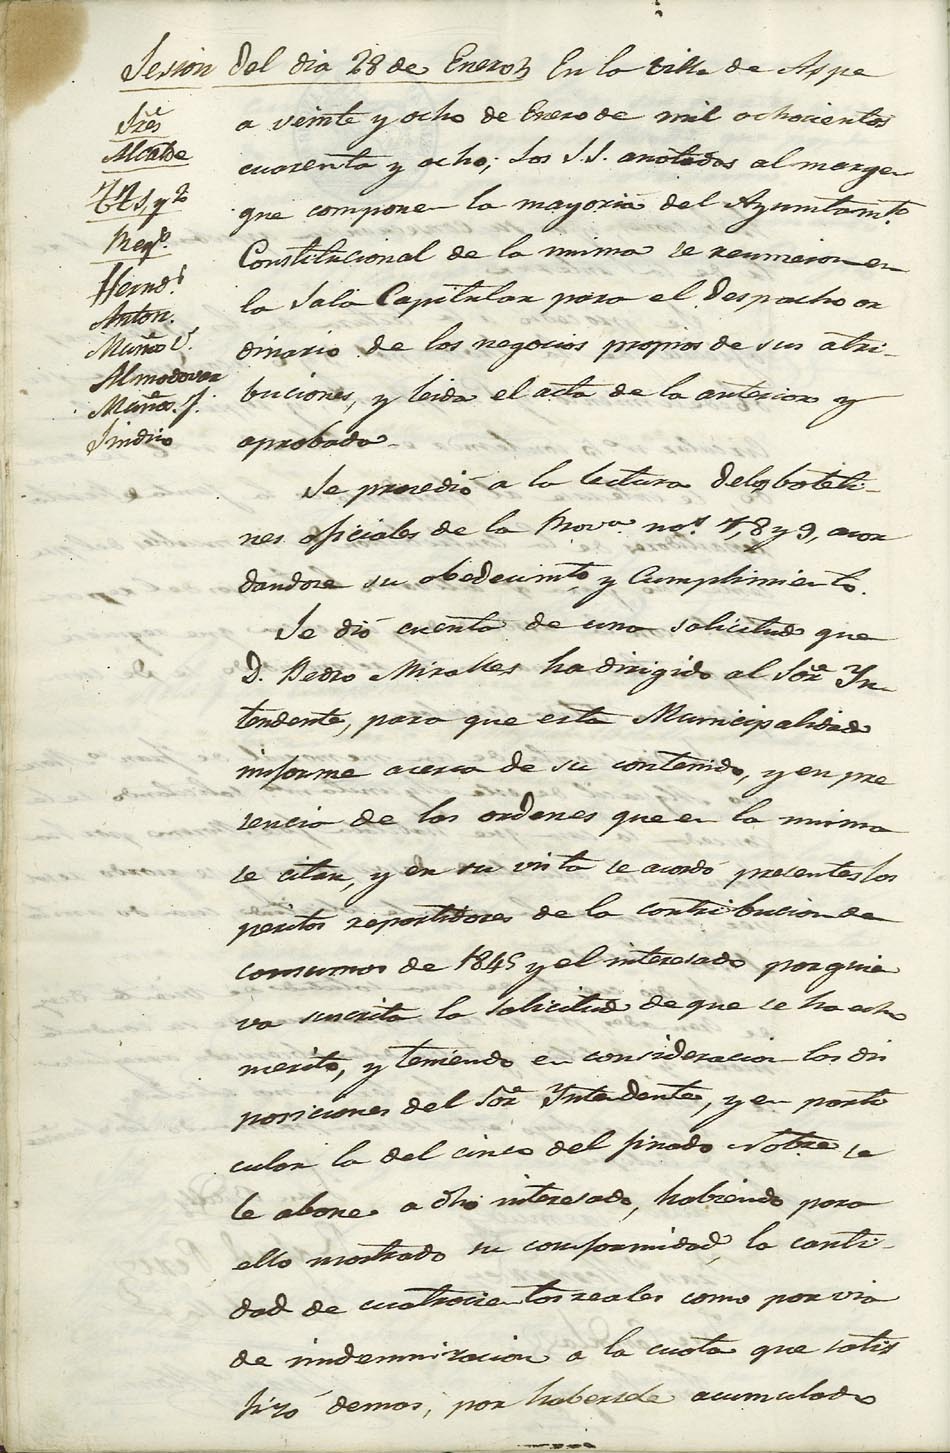 Sesion del dia 28 de Enero En la Villa de Aspe
Sres
Alcalde
Ttes y 2º
Regs.
Hernds.
Anton.
Muñoz V.
Almodovar
Muñoz. J.
Sindico
a veinte y ocho de Enero de mil ochocientos
cuarenta y ocho; los S.S. anotados al margen
que componen la mayoria del Ayuntamto
Constitucional de la misma se reunieron en
la Sala Capitular para el despacho or
dinario de los negocios propios de sus atri-
buciones, y leida el acta de la anterior y
aprobada-
Se procedió a la lectura de los boleti-
nes oficiales de la Prova. nos. 7, 8 y 9, acor
dandose su obedecimto y cumplimiento.
Se dió cuenta de una solicitud que
D. Pedro Miralles ha dirigido al Sor. Yn-
tendente, para que esta Municipalidad
informe acerca de su contenido, y en pre
sencia de las ordenes que en la misma
se citan, y en su vista se acordó presentes los
peritos repartidores de la contribucion de
consumos de 1845 y el interesado por quien
va suscrita la solicitud de que se ha echo
merito, y teniendo en consideracion las dis
posiciones del Sor. Yntendente, y en parti
cular la del cinco del finado Nobre se
le abone a dho interesado, habiendo para
ello mostrado su conformidad, la canti-
dad de cuatrocientos reales como por via
de indemnizacion a la cuota que satis
fizo demas, por habersele acumulado